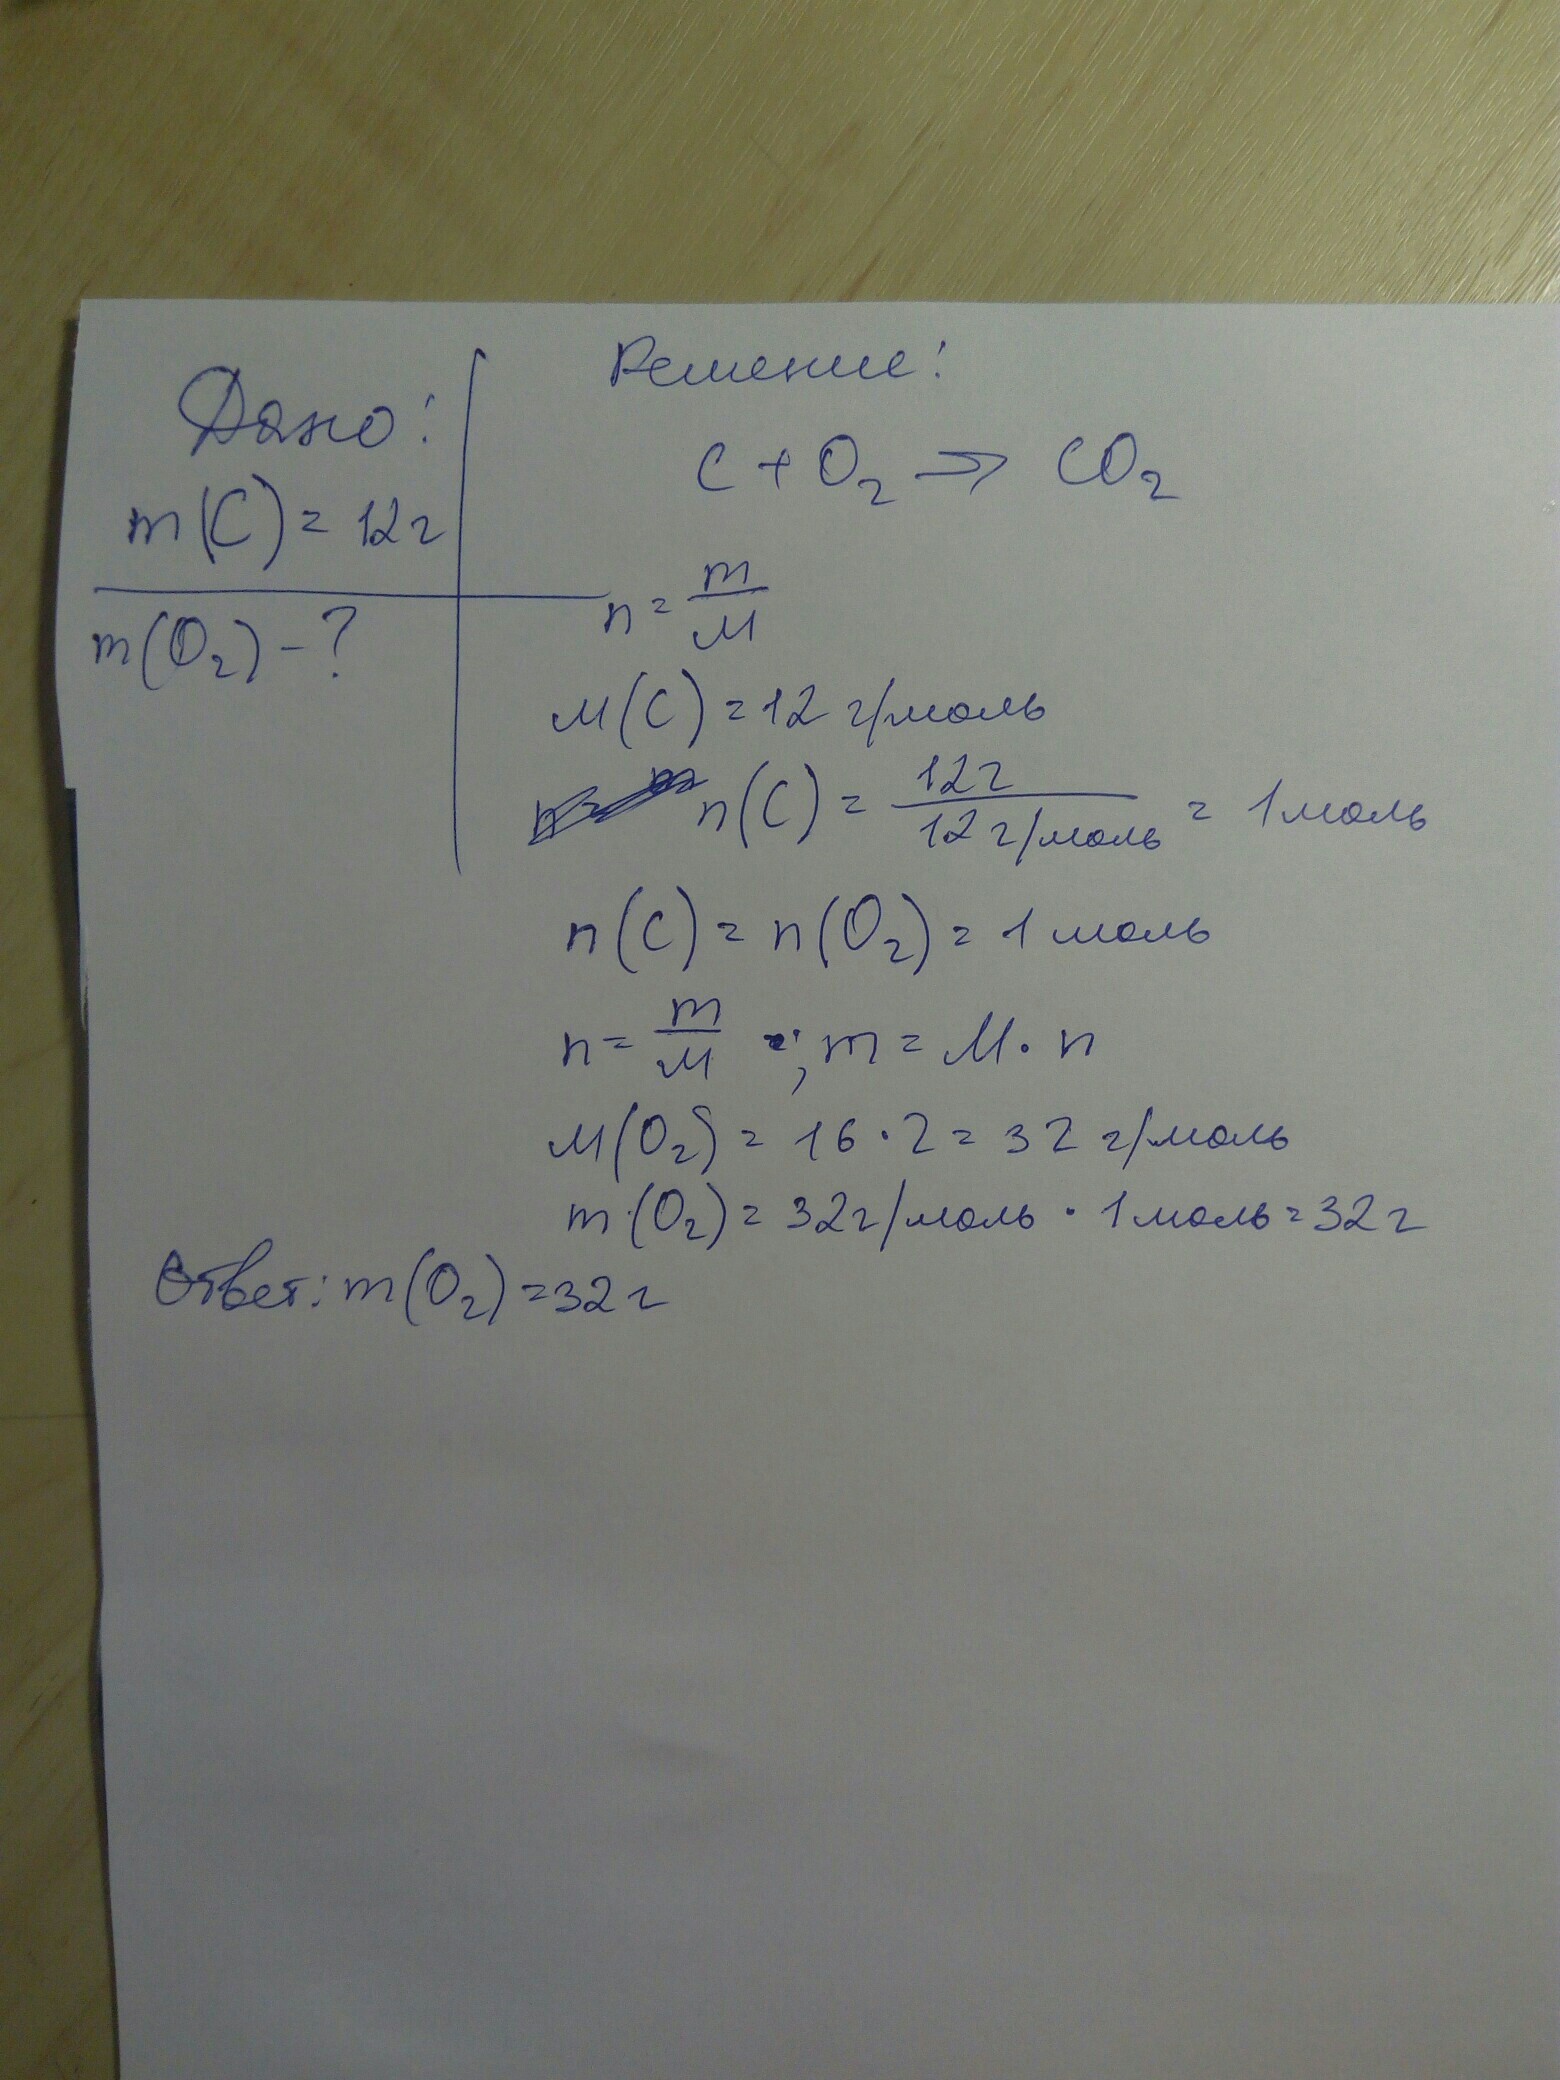 Дано:
m(C) = 12г
m(O₂) - ?
Решение:
C + O₂ → CO₂
n = m/M
M(C) = 12 г/моль
n(C) = 12г/12г/моль = 1моль
n(C) = n(O₂) = 1 моль
n = m/M ; m = M · n
M(O₂) = 16 · 2 = 32 г/моль
m(O₂) = 32г/моль · 1моль = 32г
Ответ: m(O₂) = 32г